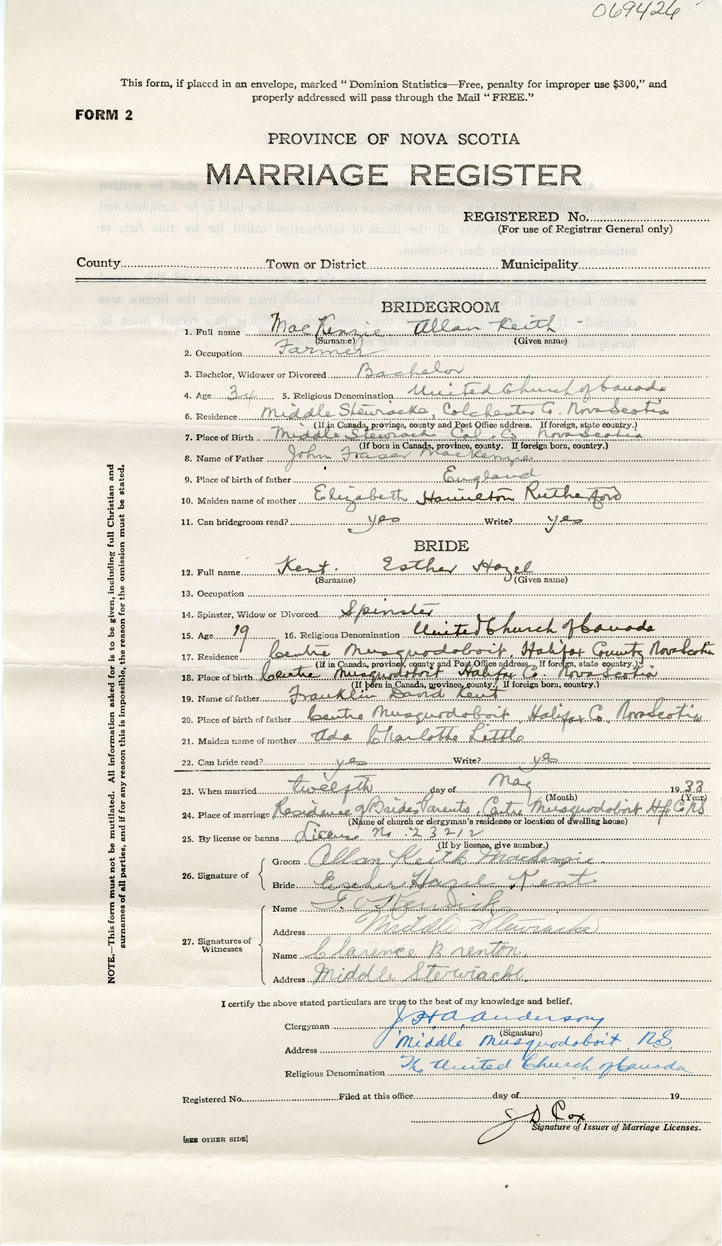 069426
This form, if placed in an envelope, marked “ Dominion Statistics—Free, penalty for improper use $300,” and
properly addressed will pass through the Mail “ FREE.”
FORM 2
PROVINCE OF NOVA SCOTIA
MARRIAGE REGISTER
REGISTERED No.
(For use of Registrar General only)
County Town or District Municipality
BRIDEGROOM
1. Full name MacKenzie Allan Keith
(Surname) (Given name)
2. Occupation Farmer
3. Bachelor, Widower or Divorced Bachelor
4. Age 5. Religious Denomination United Church of Canada
6. Residence Middle Stewiacke, Colchester Co. Nova Scotia
(If in Canada, province, county and Post Office address. If foreign, state country.)
7. Place of Birth Middle Stewiack Col. Co. Nova Scotia
(If born in Canada, province, county. If foreign born, country.)
8. Name of Father John Fraser MacKenzie
9. Place of birth of father England
10. Maiden name of mother Elizabeth Hamilton Rutherford
11. Can bridegroom read? yes Write? yes
BRIDE
12. Full name Kent. Esther Hazel
(Surname) (Given name)
13. Occupation
14. Spinster, Widow or Divorced Spinster
15. Age 19 16. Religious Denomination United Church of Canada
17. Residence Centre Musquodoboit, Halifax County Nova Scotia
(If in Canada, province, county and Post Office address. If foreign, state country.)
18. Place of birth Centre Musquodoboit Halifax Co. Nova Scotia
(If born in Canada, province, county. If foreign born, country.)
19. Name of father Franklin David Kent
20. Place of birth of father Centre Musquodoboit, Halifax Co, Nova Scotia
21. Maiden name of mother Ada Charlotte Little
22. Can bride read? yes Write? yes
23. When married twelfth day of May 1933
(Month) (Year)
24. Place of marriage Residence of Brides Parents, Centre Musquodoboit Hfx Co NS
(Name of church or clergyman's residence or location of dwelling house)
25. By license or banns License No 23212
(If by licence, give number.)
26. Signature of
Groom Allan Keith Mackenzie
Bride Esther Hazel Kent
27. Signatures of Witnesses
Name
Address Middle Stewiacke
Name Clarence Brenton
Address Middle Stewiacke
NOTE.—This form must not be mutilated. All information asked for is to be given, including full Christian and
surnames of all parties, and if for any reason this is impossible, the reason for the omission must be stated.
I certify the above stated particulars are true to the best of my knowledge and belief.
Clergyman J H A Anderson
(Signature)
Address Middle Musquodoboit NS
Religious Denomination The United Church of Canada
Registered No. Filed at this office day of 19
J D Cox
Signature of Issuer of Marriage Licenses.
[SEE OTHER SIDE]